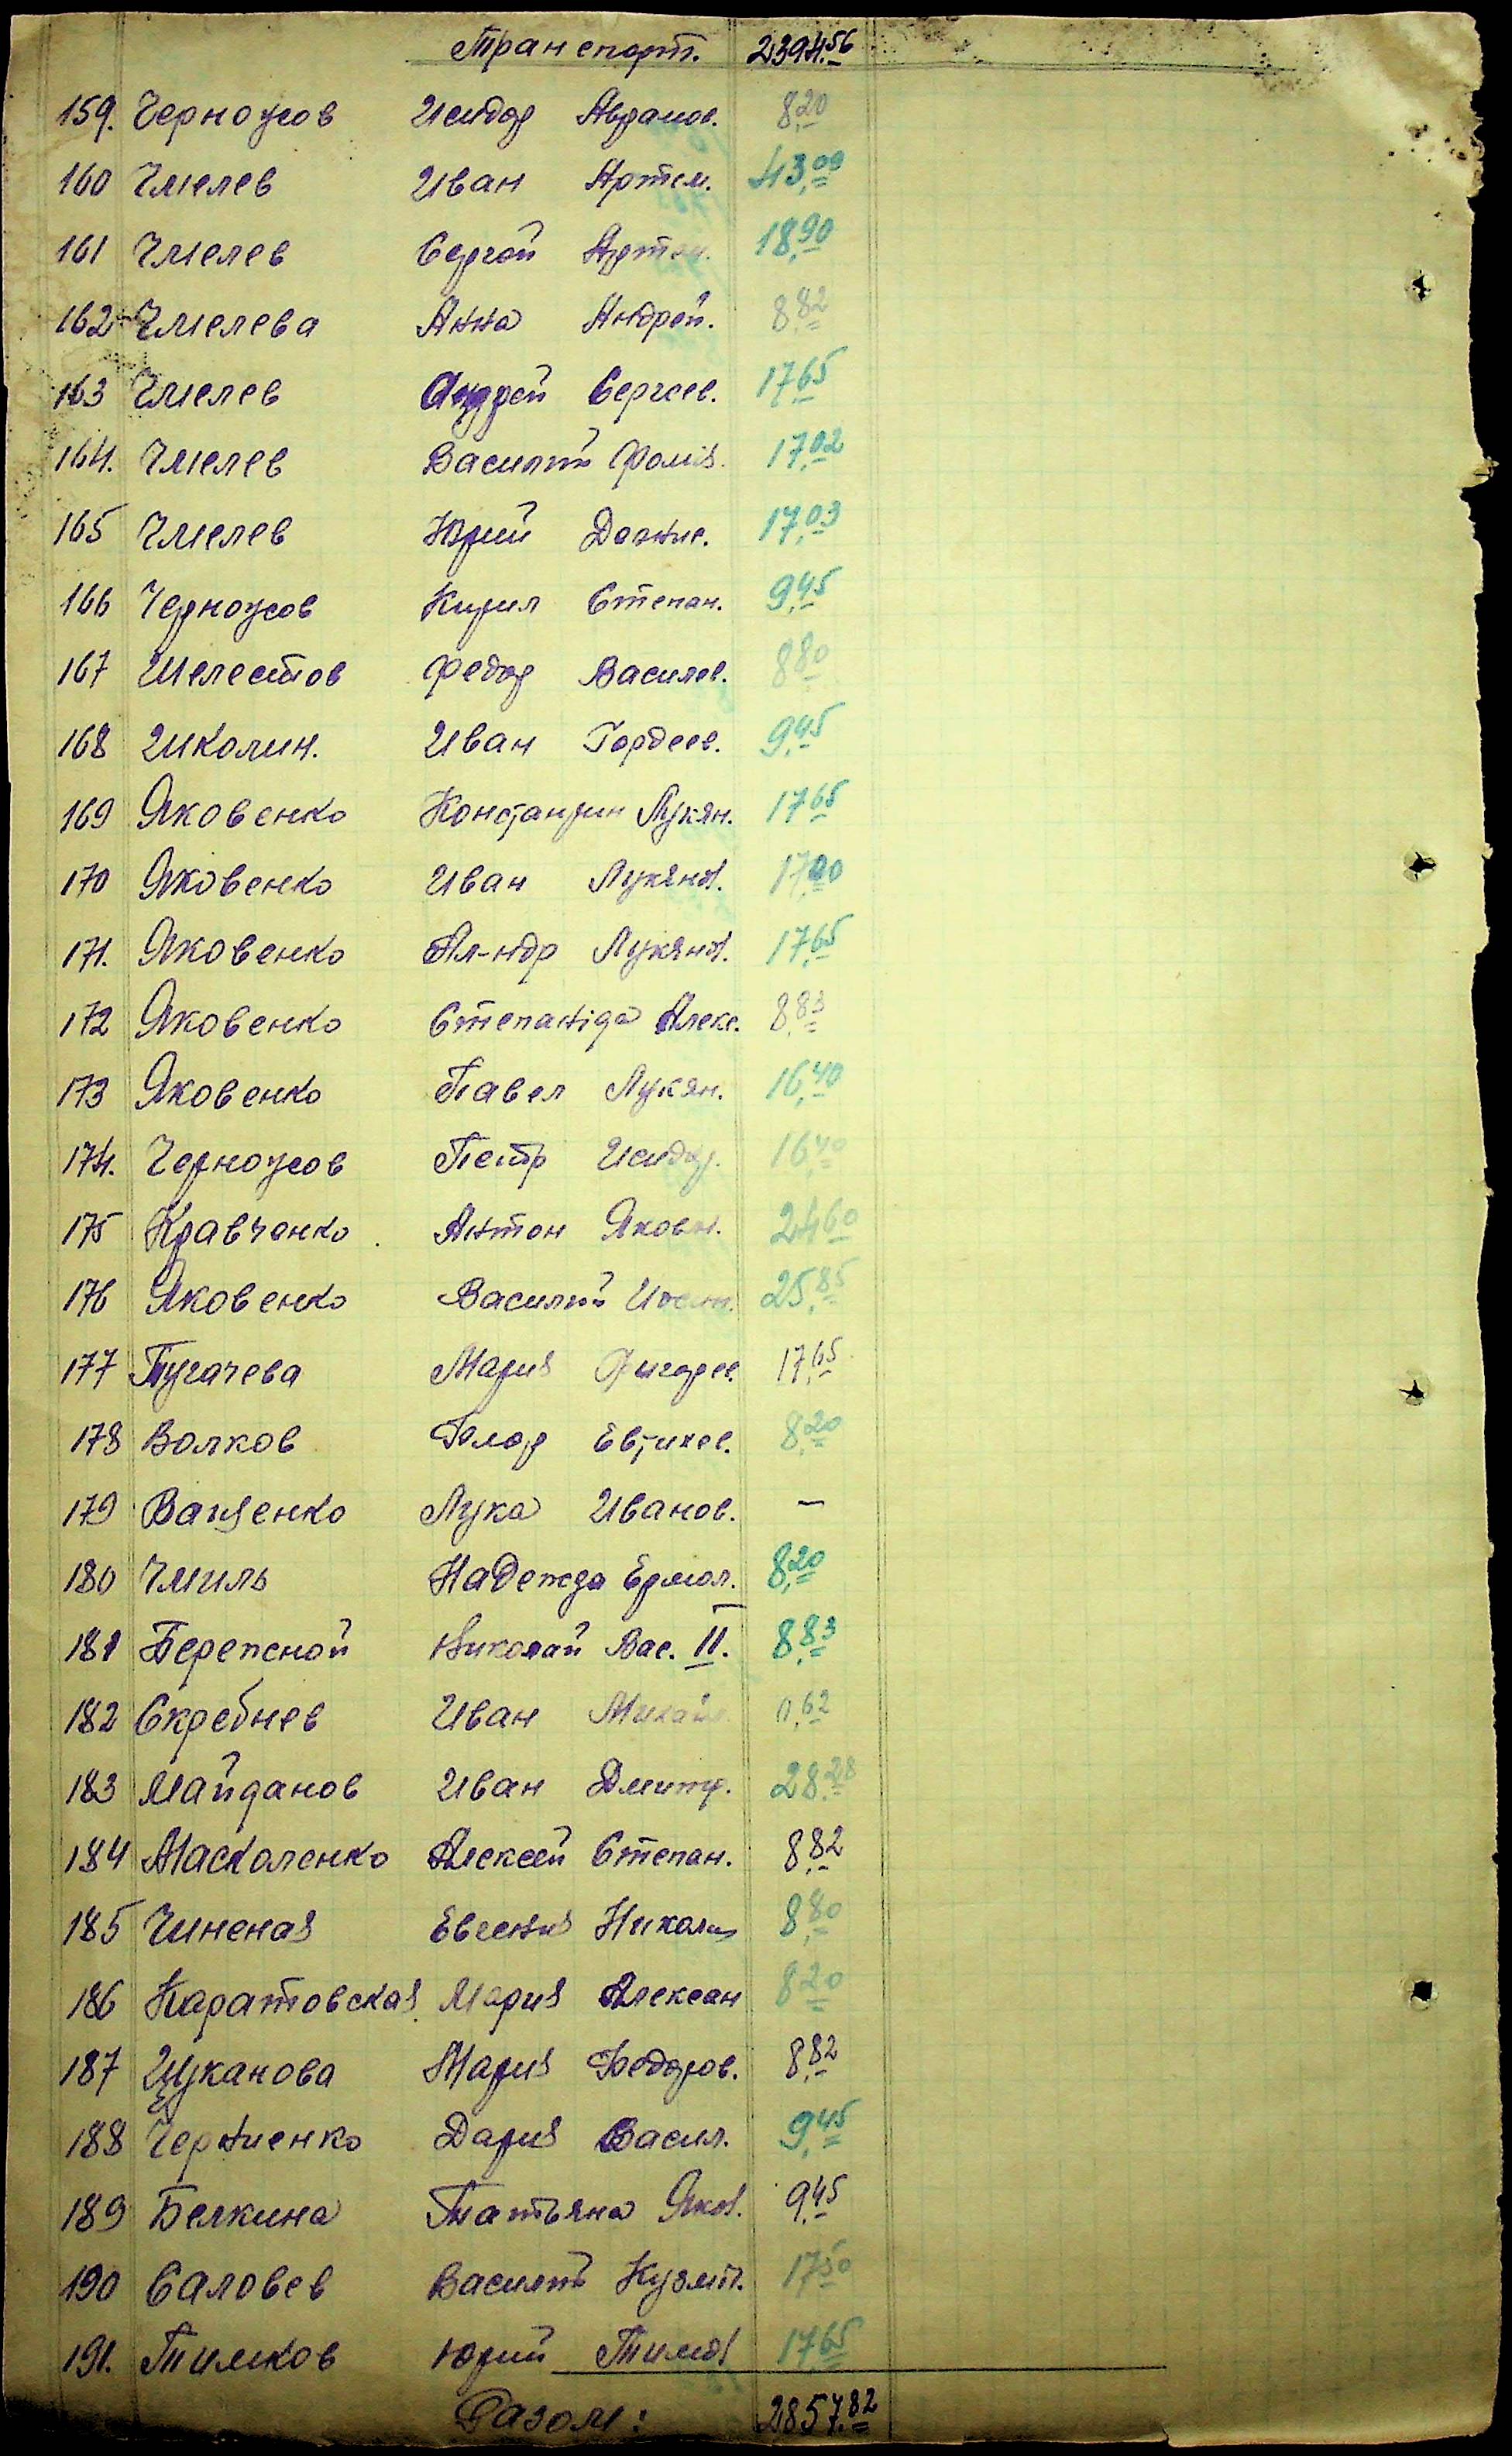 Транспорт. 2394.56
159. Черноусов Исидор Аврамов. 8,20
160 Чмелев Иван Артем. 43,09
161 Чмелев Сергей Артем. 18,90
162 Чмелева Анна Андрей. 8,82
163 Чмелев Андрей Сергеев. 17,65
164. Чмелев Василий Фомів. 17,02
165 Чмелев Юрий 17,03
166 Черноусов Кирил Степан. 9,45
167 Шелестов Федор Василев. 8,80
168 Школин. Иван Гордеев. 9,45
169 Яковенко Констанрин Лукян. 17,65
170 Яковенко Иван Лукянов. 17,00
171. Яковенко Ал-ндр Лукянов. 17,65
172 Яковенко Степанида Алекс. 8,83
173 Яковенко Павел Лукян. 16,40
174. Черноусов Петр Исидор. 16,40
175 Кравченко Антон Яковл. 24,60
176 Яковенко Василий 25,85
177 Пугачева Мария Григорев. 17,65
178 Волков Флор Евтихев. 8,20
179 Ващенко Лука Иванов. —
180 Чмиль Надежда Ермол. 8,20
181 Бережной Николай Вас. II. 8,83
182 Скребнев Иван Михайл. 0,62
183 Майданов Иван Дмитр. 28,28
184 Маскаленко Алексей Степан. 8,82
185 Чиненая Евгения Никола 8,80
186 Каратовская Мария Алексан 8,20
187 Щуканова Мария Федоров. 8,82
188 Черниенко Дария Васил. 9,45
189 Белкина Татьяна Яков. 9,45
190 Саловев Василий Кузмич. 17,50
191. Тимков Юрий Тимоф 17,65
Разом: 2857.82